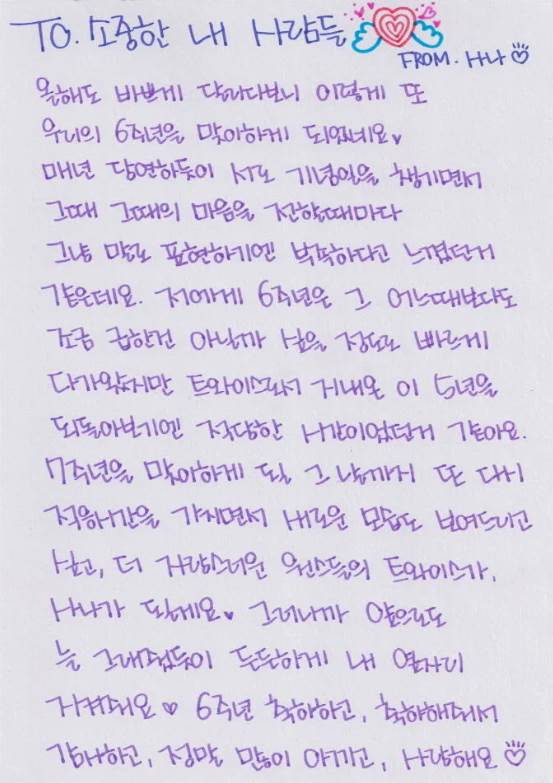 TO. 소중한 내 사람들
FROM. 사나
올해도 바쁘게 달리다보니 이렇게 또
우리의 6주년을 맞이하게 되었네요♥
매년 당연하듯이 서로 기념일을 챙기면서
그때 그때의 마음을 전할때마다
그냥 말로 표현하기엔 부족하다고 느꼈던거
같은데요. 저에게 6주년은 그 어느때보다도
조금 급한건 아닐까 싶을 정도로 빠르게
다가왔지만 트와이스로서 지내온 이 5년을
되돌아보기엔 적당한 시간이었던거 같아요.
7주년을 맞이하게 될 그 날까지 또 다시
적응시간을 가지면서 새로운 모습도 보여드리고
싶고, 더 자랑스러운 원스들의 트와이스가,
사나가 될게요♥ 그러니까 앞으로도
늘 그래왔듯이 든든하게 내 옆자리
지켜줘요♥ 6주년 축하하고, 축하해줘서
감사하고, 정말 많이 아끼고, 사랑해요♡